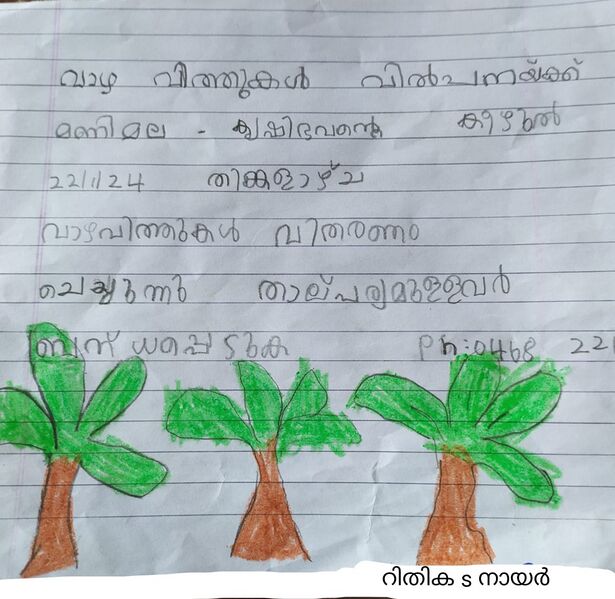 വാഴ വിത്തുകൾ വിൽപനയ്ക്ക്
മണിമല - കൃഷിഭവൻ്റെ കീഴിൽ
22/1/24 തിങ്കളാഴ്ച
വാഴവിത്തുകൾ വിതരണം
ചെയ്യുന്നു താല്പര്യമുള്ളവർ
ബന്ധപ്പെടുക Ph:0468 221
റിതിക s നായർ